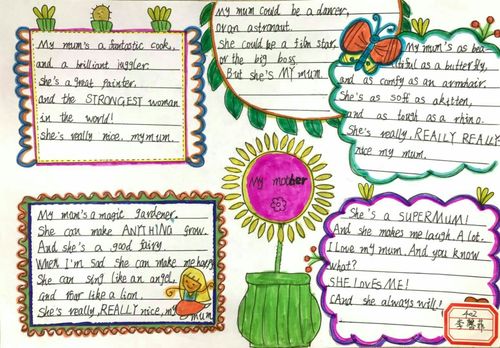 My mum's a fantastic cook,
and a brilliant juggler
She's a great painter.
and the STRONGEST woman
in the world!
She's really nice, my mum.
My mum could be a dancer,
or an astronaut.
She could be a film star.
or the big boss
But she's MY mum.
My mum's as bea-
utiful as a butterfly,
and as comfy as an armchair.
She's as soft as a kitten,
and as tough as a rhino.
She's really, REALLY REALLY
nice my mum.
My mother
My mum's a magic gardener.
She can make ANYTHING grow.
And she's a good fairy.
When I'm sad she can make me happy.
She can sing like an angel,
and roar like a lion.
She's really, REALLY nice, my mum
She's a SUPERMUM!
And she makes me laugh. A lot.
I love my mum. And you know
what?
SHE LOVES ME!
(And she always will!)
402